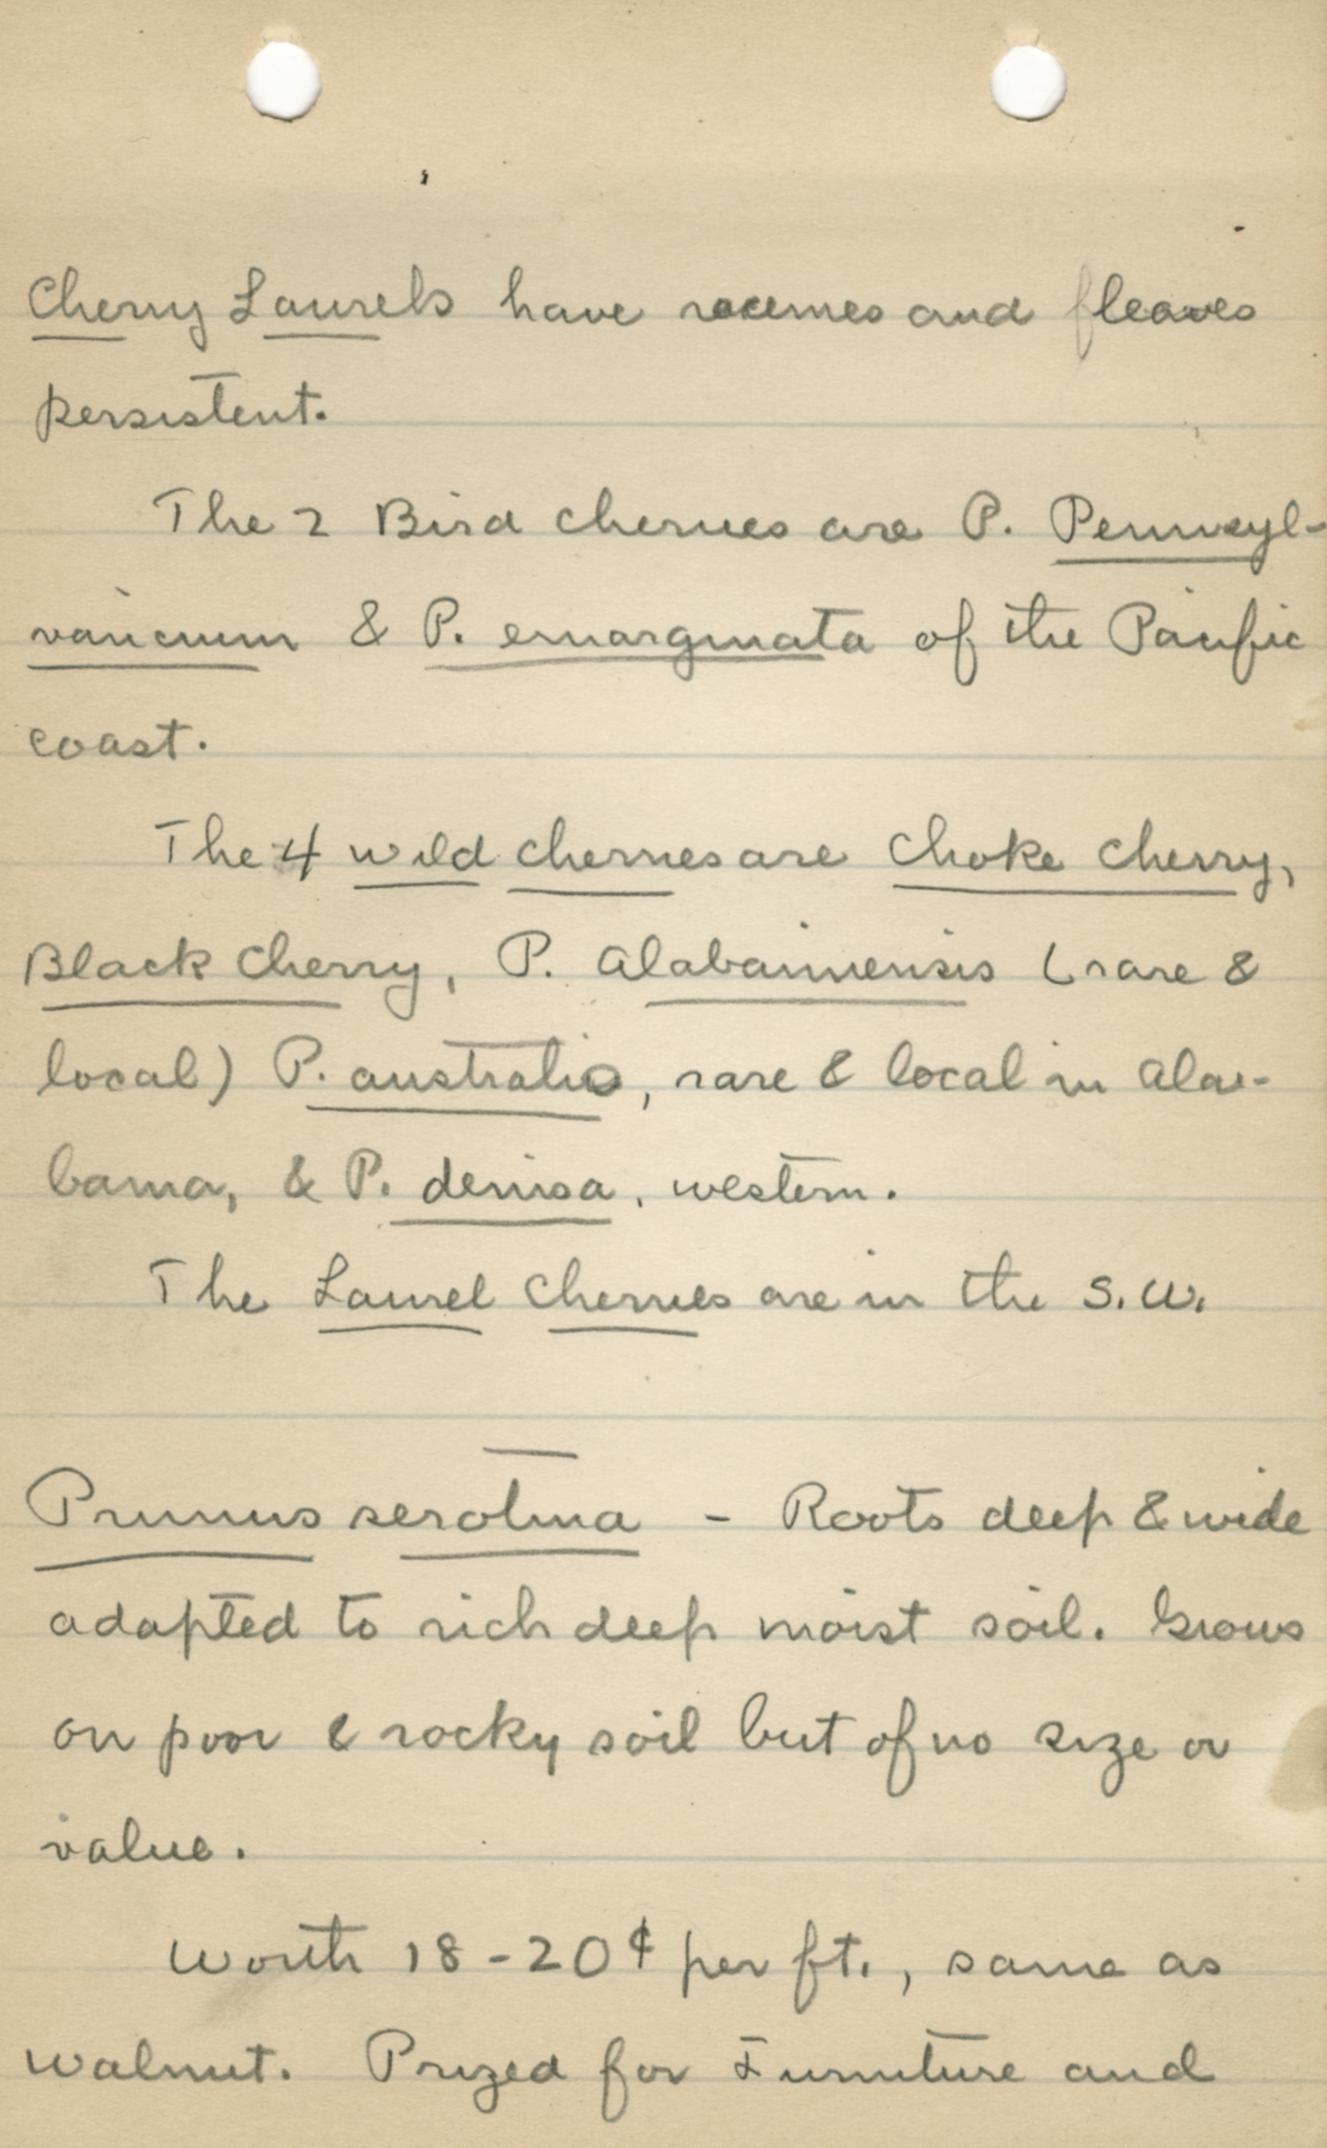 Cherry Laurels have racemes and leaves
persistent.
The 2 Bird cherries are P. Pennsyl-
vanicum & P. emarginata of the Pacific
coast.
The 4 wild cherries are Choke Cherry,
Black Cherry, P. Alabamensis (rare &
local) P. australis, rare & local in Ala-
bama, & P. demissa, western.
The Laurel Cherries are in the S.W.
Prunus serotina - Roots deep & wide
adapted to rich deep moist soil. Grows
on poor & rocky soil but of no size or
value.
Worth 18-20¢ per ft., same as
walnut. Prized for Furniture and